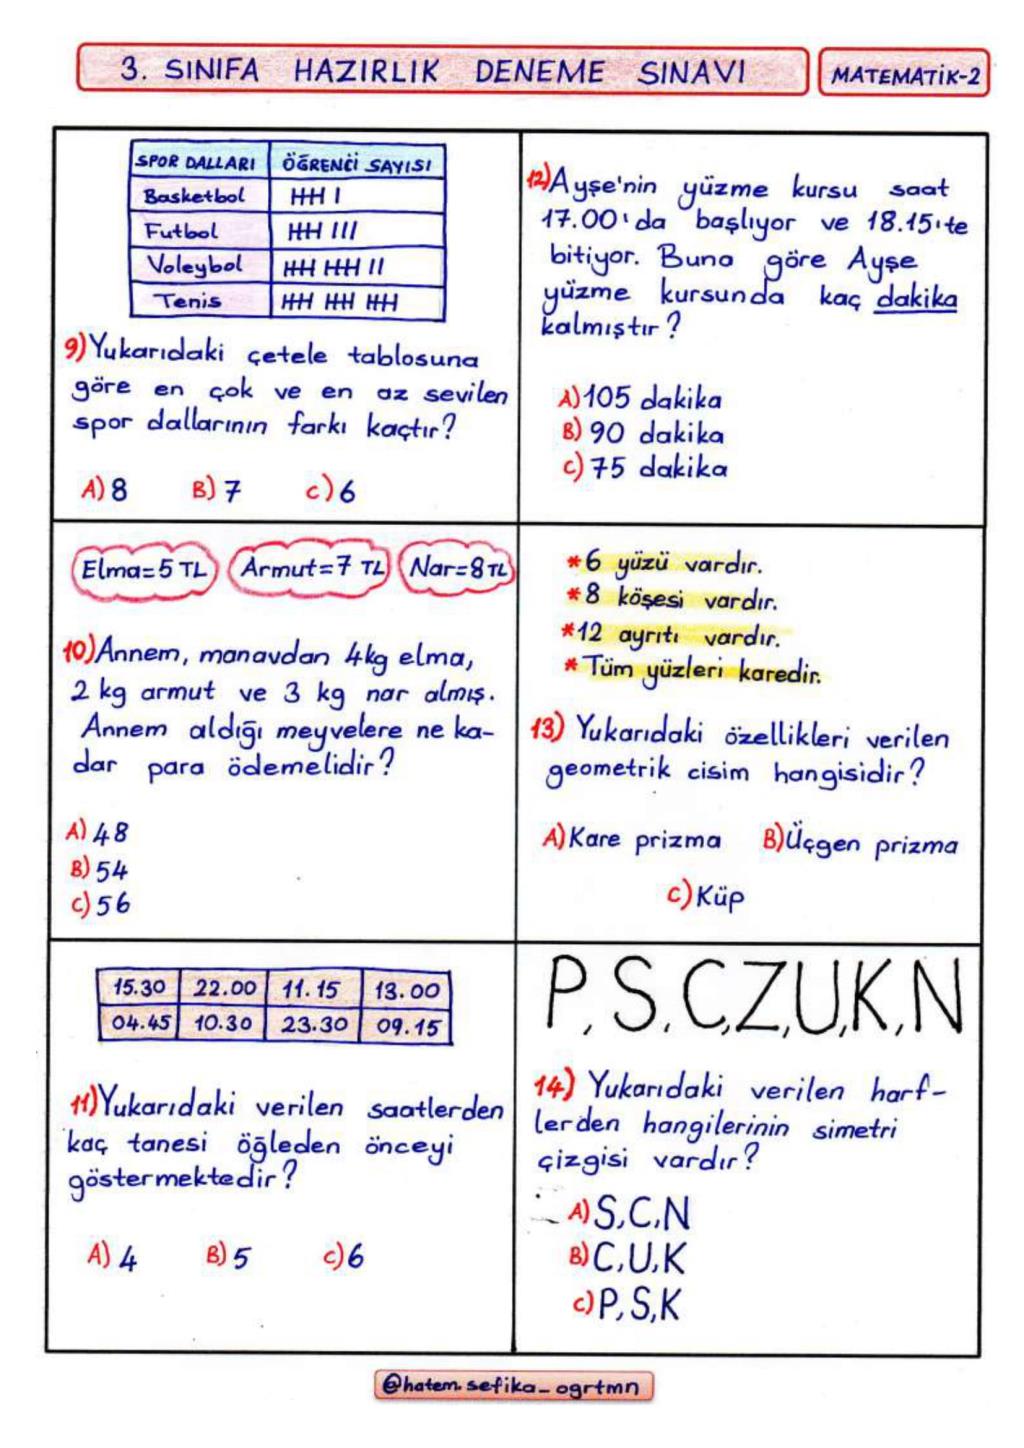 3. SINIFA HAZIRLIK DENEME SINAVI
MATEMATİK-2
SPOR DALLARI ÖĞRENCİ SAYISI
Basketbol
Futbol
Voleybol
Tenis
9) Yukarıdaki çetele tablosuna
göre en çok ve en az sevilen
spor dallarının farkı kaçtır?
A) 8 B) 7 C) 6
Elma=5 TL Armut=7 TL Nar=8 TL
10) Annem, manavdan 4kg elma,
2 kg armut ve 3 kg nar almış.
Annem aldığı meyvelere ne ka-
dar para ödemelidir?
A) 48
B) 54
C) 56
15.30 22.00 11.15 13.00
04.45 10.30 23.30 09.15
11) Yukarıdaki verilen saatlerden
kaç tanesi öğleden önceyi
göstermektedir?
A) 4 B) 5 C) 6
12) Ayşe'nin yüzme kursu saat
17.00'da başlıyor ve 18.15'te
bitiyor. Buna göre Ayşe
yüzme kursunda kaç dakika
kalmıştır?
A) 105 dakika
B) 90 dakika
C) 75 dakika
*6 yüzü vardır.
*8 köşesi vardır.
*12 ayrıtı vardır.
*Tüm yüzleri karedir.
13) Yukarıdaki özellikleri verilen
geometrik cisim hangisidir?
A) Kare prizma B) Üçgen prizma
C) Küp
P, S, C, Z, U, K, N
14) Yukarıdaki verilen harf-
lerden hangilerinin simetri
çizgisi vardır?
A) S, C, N
B) C, U, K
C) P, S, K
@hatem.sefika_ogrtmn